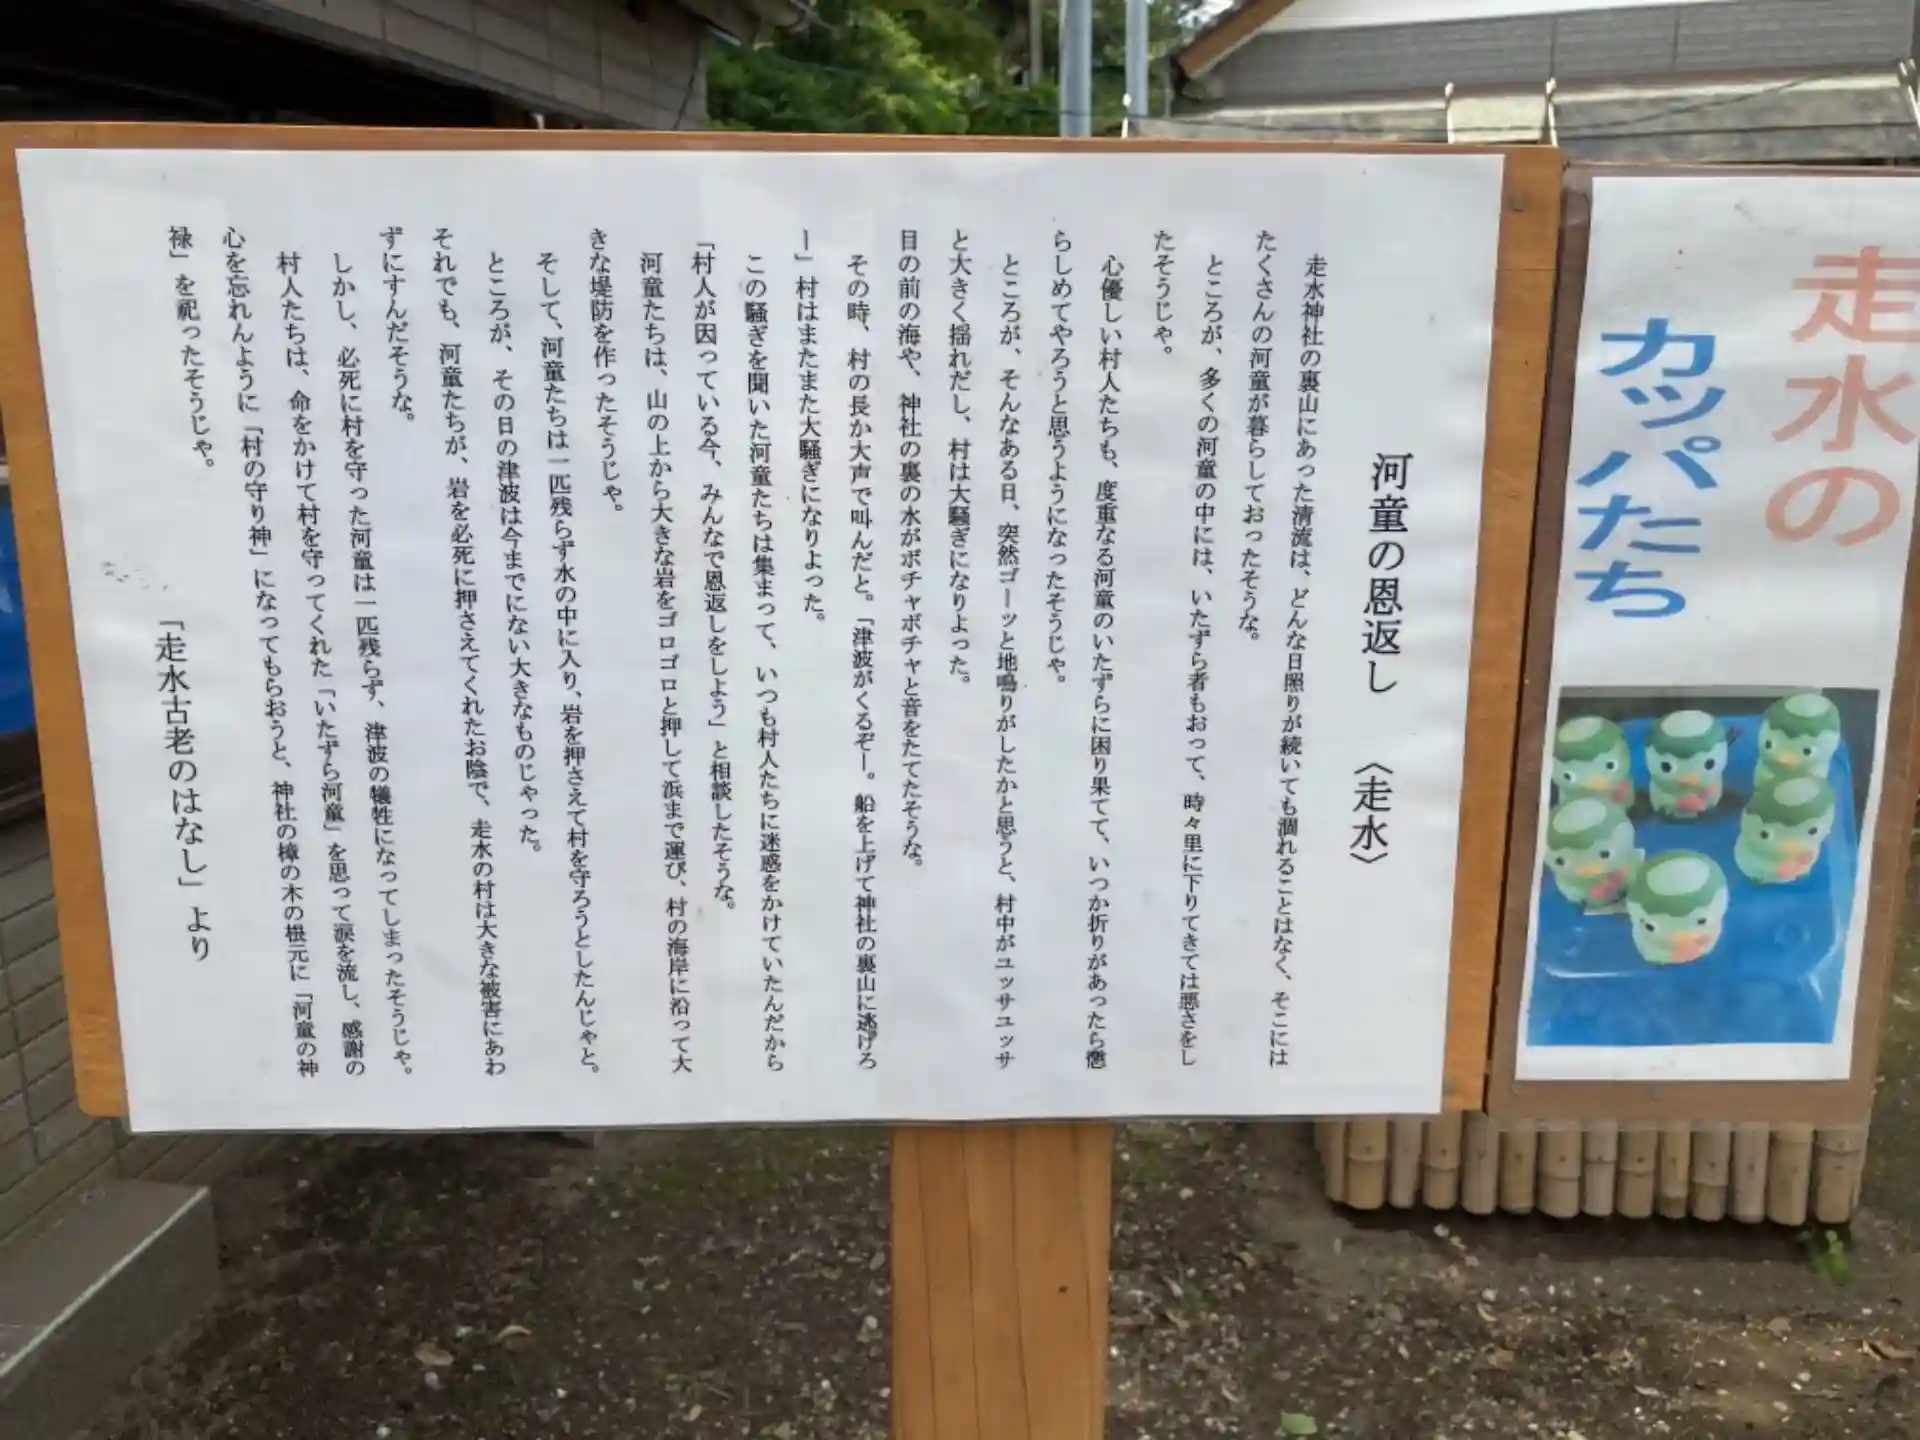 河童の恩返し 〈走水〉
走水神社の裏山にあった清流は、どんな日照りが続いても涸れることはなく、そこには
たくさんの河童が暮らしておったそうな。
ところが、多くの河童の中には、いたずら者もおって、時々里に下りてきては悪さをし
たそうじゃ。
心優しい村人たちも、度重なる河童のいたずらに困り果てて、いつか折りがあったら懲
らしめてやろうと思うようになったそうじゃ。
ところが、そんなある日、突然ゴーッと地鳴りがしたかと思うと、村中がユッサユッサ
と大きく揺れだし、村は大騒ぎになりよった。
目の前の海や、神社の裏の水がボチャボチャと音をたてたそうな。
その時、村の長か大声で叫んだと。「津波がくるぞー。船を上げて神社の裏山に逃げろ
ー」村はまたまた大騒ぎになりよった。
この騒ぎを聞いた河童たちは集まって、いつも村人たちに迷惑をかけていたんだから
「村人が因っている今、みんなで恩返しをしよう」と相談したそうな。
河童たちは、山の上から大きな岩をゴロゴロと押して浜まで運び、村の海岸に沿って大
きな堤防を作ったそうじゃ。
そして、河童たちは一匹残らず水の中に入り、岩を押さえて村を守ろうとしたんじゃと。
ところが、その日の津波は今までにない大きなものじゃった。
それでも、河童たちが、岩を必死に押さえてくれたお陰で、走水の村は大きな被害にあわ
ずにすんだそうな。
しかし、必死に村を守った河童は一匹残らず、津波の犠牲になってしまったそうじゃ。
村人たちは、命をかけて村を守ってくれた「いたずら河童」を思って涙を流し、感謝の
心を忘れんように「村の守り神」になってもらおうと、神社の樟の木の根元に「河童の神
禄」を祀ったそうじゃ。
「走水古老のはなし」より
走水の
カッパたち